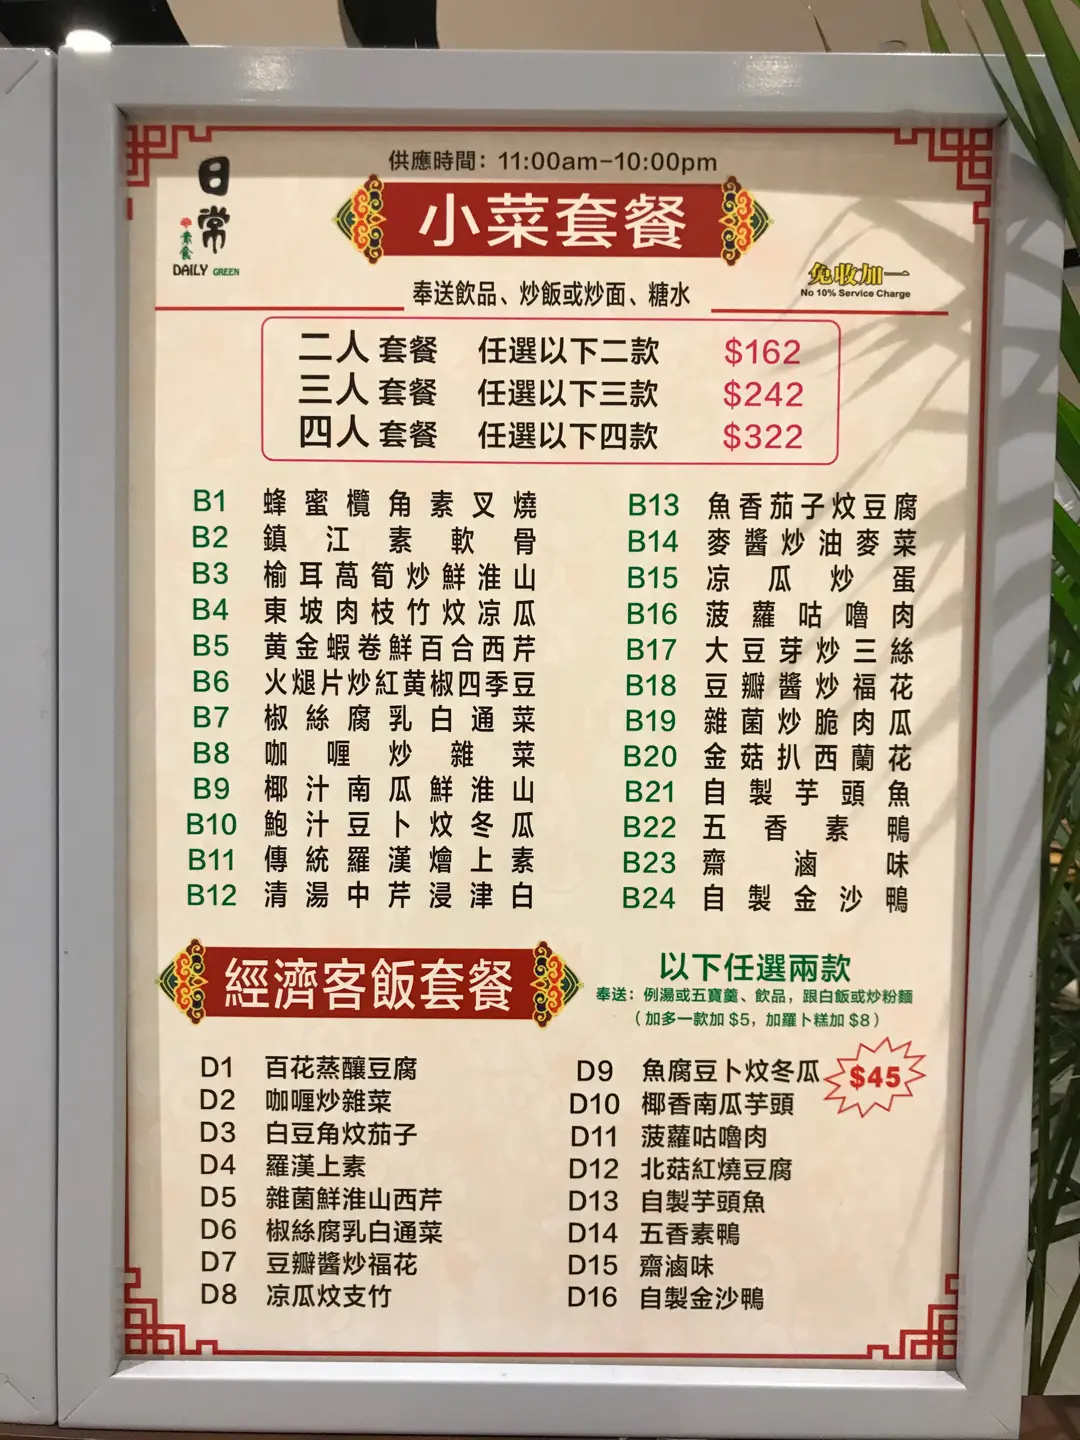 日常
素食
DAILY GREEN
供應時間：11:00am-10:00pm
小菜套餐
免收加一
No 10% Service Charge
奉送飲品、炒飯或炒面、糖水
二人 套餐 任選以下二款 $162
三人 套餐 任選以下三款 $242
四人 套餐 任選以下四款 $322
B1 蜂蜜欖角素叉燒
B2 鎮江素軟骨
B3 榆耳萵筍炒鮮淮山
B4 東坡肉枝竹炆凉瓜
B5 黄金蝦卷鮮百合西芹
B6 火腿片炒紅黄椒四季豆
B7 椒絲腐乳白通菜
B8 咖喱炒雜菜
B9 椰汁南瓜鮮淮山
B10 鮑汁豆卜炆冬瓜
B11 傳統羅漢燴上素
B12 清湯中芹浸津白
B13 魚香茄子炆豆腐
B14 麥醬炒油麥菜
B15 凉瓜炒蛋
B16 菠蘿咕嚕肉
B17 大豆芽炒三絲
B18 豆瓣醬炒福花
B19 雜菌炒脆肉瓜
B20 金菇扒西蘭花
B21 自製芋頭魚
B22 五香素鴨
B23 齋滷味
B24 自製金沙鴨
經濟客飯套餐
以下任選兩款
奉送：例湯或五寶羹、飲品，跟白飯或炒粉麵
（加多一款加 $5，加羅卜糕加 $8）
$45
D1 百花蒸釀豆腐
D2 咖喱炒雜菜
D3 白豆角炆茄子
D4 羅漢上素
D5 雜菌鮮淮山西芹
D6 椒絲腐乳白通菜
D7 豆瓣醬炒福花
D8 凉瓜炆支竹
D9 魚腐豆卜炆冬瓜
D10 椰香南瓜芋頭
D11 菠蘿咕嚕肉
D12 北菇紅燒豆腐
D13 自製芋頭魚
D14 五香素鴨
D15 齋滷味
D16 自製金沙鴨